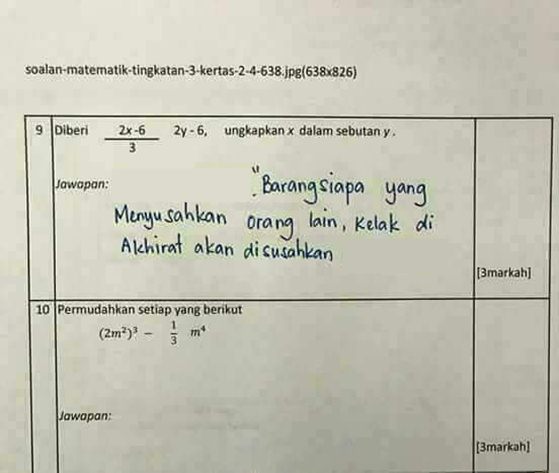 soalan-matematik-tingkatan-3-kertas-2-4-638.jpg(638x826)
9 Diberi 2x-6/3 2y - 6, ungkapkan x dalam sebutan y.
Jawapan:
"Barangsiapa yang
Menyusahkan orang lain, Kelak di
Akhirat akan disusahkan
[3markah]
10 Permudahkan setiap yang berikut
(2m²)³ − 1/3 m⁴
Jawapan:
[3markah]